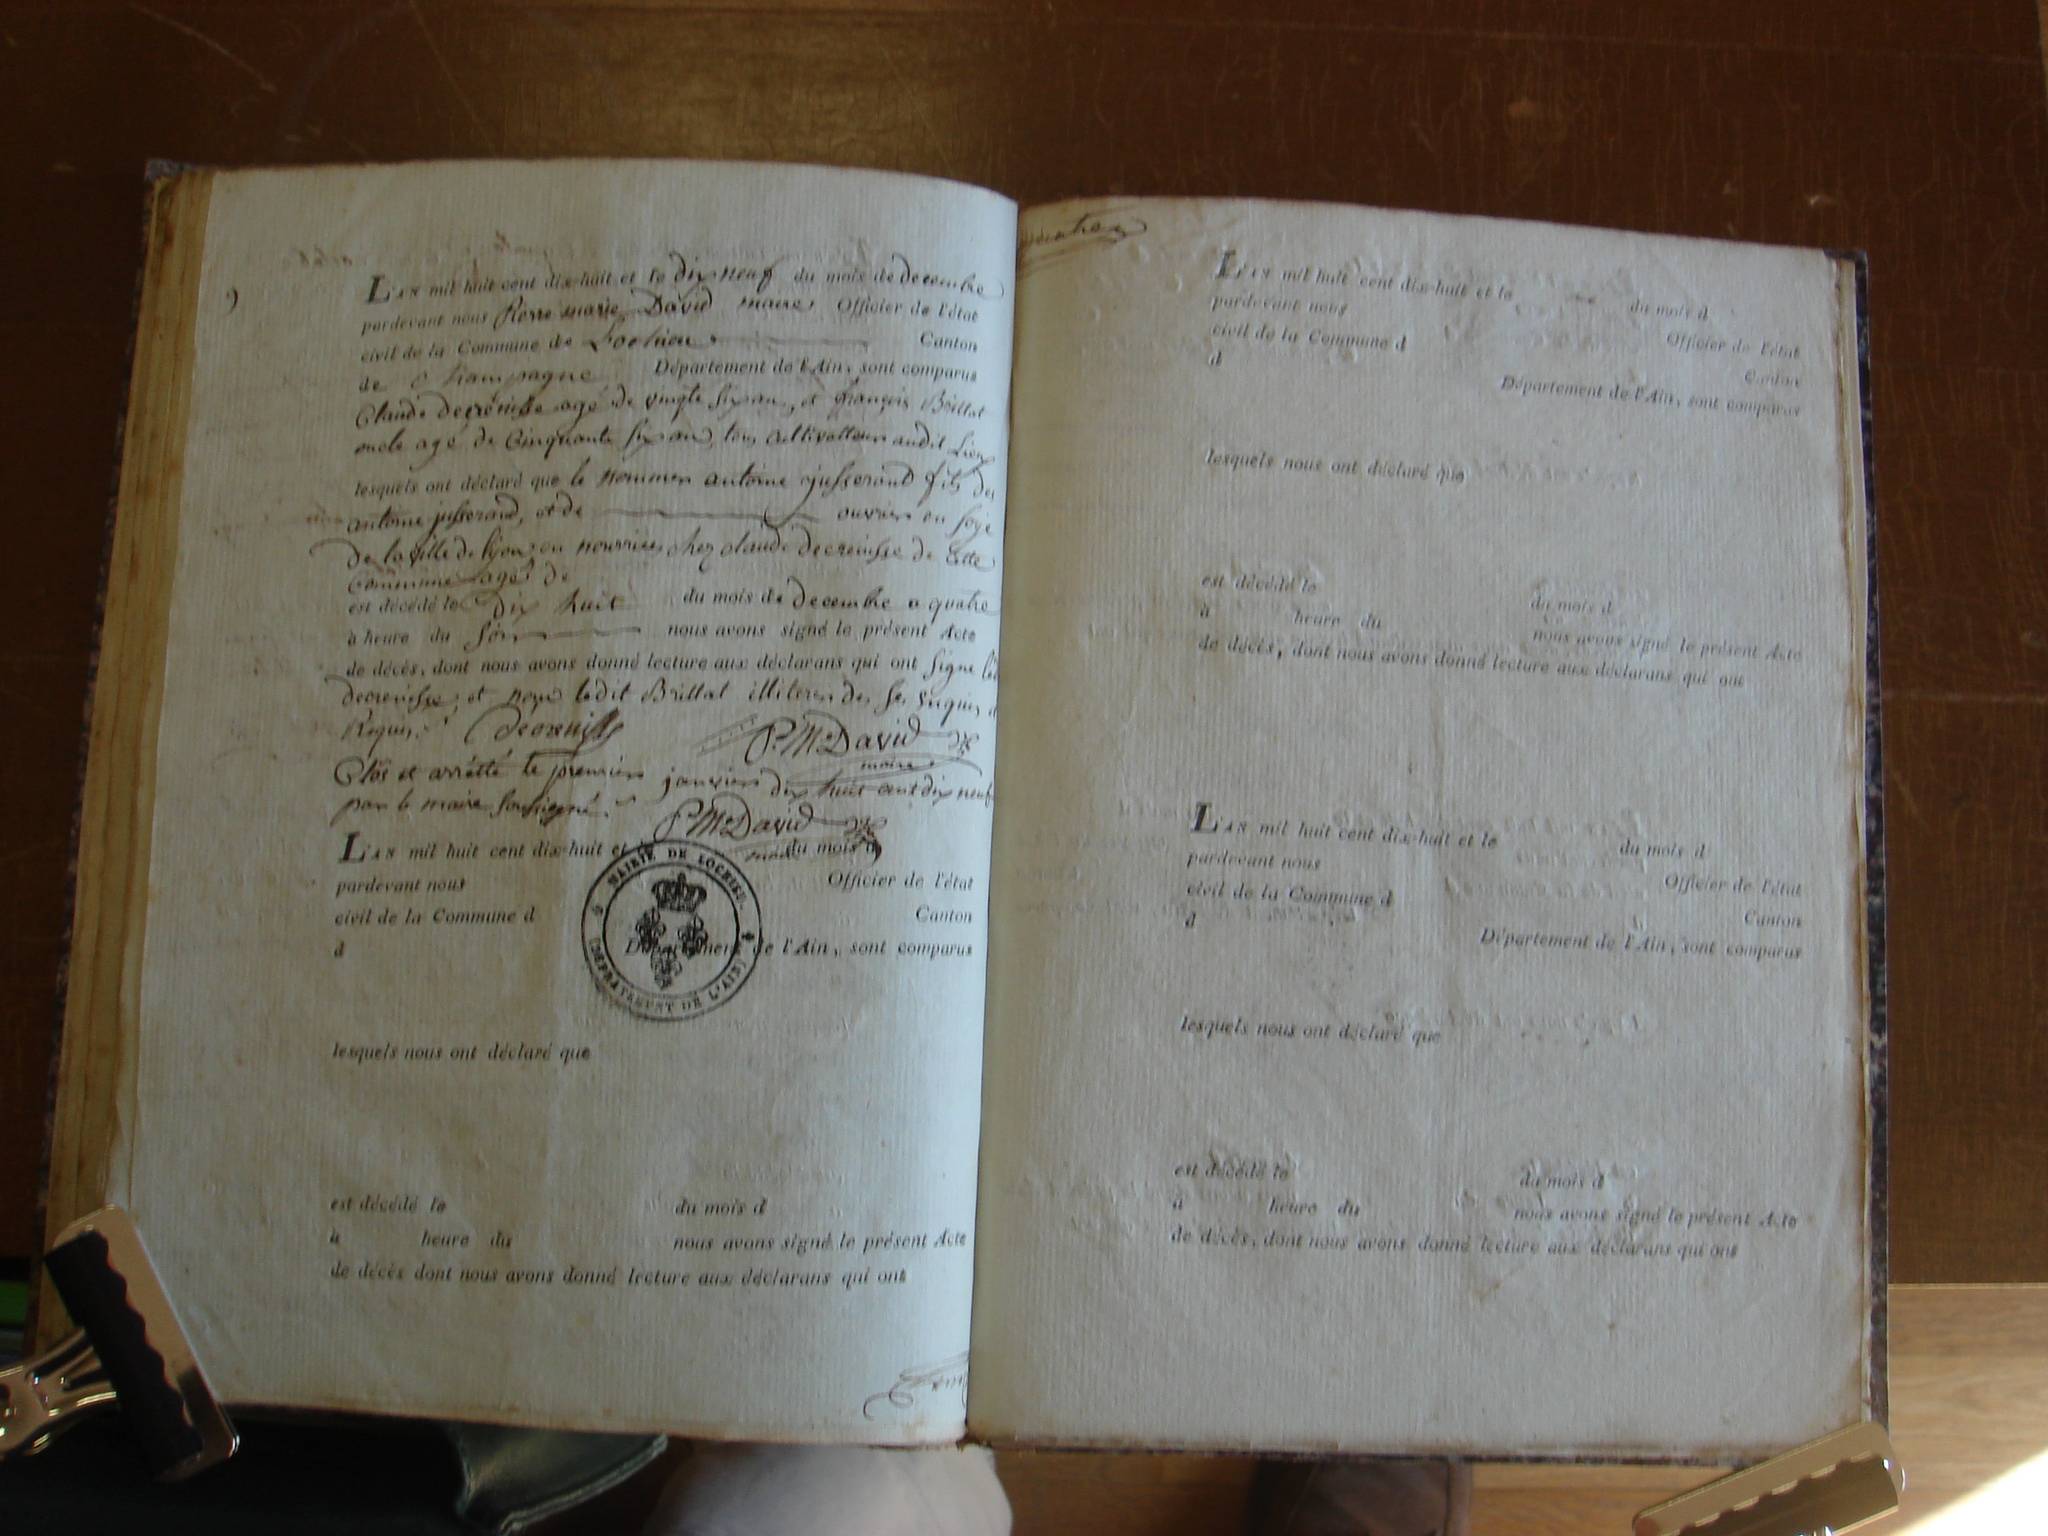 9
L'AN mil huit cent dix-huit et le dix neuf du mois de decembre
pardevant nous Pierre marie David maire Officier de l'état
civil de la Commune de Lochieu Canton
de Champagne Département de l'Ain, sont comparus
Claude decrenisse agé de vingt six an, et françois Brillat
oncle agé de Cinquante six an, tous cultivatteurs audit Lieu
lesquels ont déclaré que le nommer antoine jusserand fils des
antoine jusserand, et de ouvrier en soye
de la ville de lyon en nourrice chez claude decrenisse de cette
Commune agé de
est décédé le Dix huit du mois de decembre a quatre
à heure du soir nous avons signé le présent Acte
de décès, dont nous avons donné lecture aux déclarans qui ont signe
decrenisse, et non ledit Brillat illiterer de ses enquis et
Requis.
decrenisse P. M. David
maire
Clos et arrétté le premier janvier dix huit cent dix neuf
par le maire soussigné.
P. M. David
maire
L'AN mil huit cent dix-huit et le du mois d
pardevant nous Officier de l'état
civil de la Commune d Canton
d Département de l'Ain, sont comparus
MAIRIE DE LOCHIEU.
(DÉPRATEMENT DE L'AIN)
lesquels nous ont déclaré que
est décédé le du mois d
à heure du nous avons signé le présent Acte
de décès dont nous avons donné lecture aux déclarans qui ont
L'AN mil huit cent dix-huit et le du mois d
pardevant nous Officier de l'état
civil de la Commune d Canton
d Département de l'Ain, sont comparus
lesquels nous ont déclaré que
est décédé le du mois d
à heure du nous avons signé le présent Acte
de décès, dont nous avons donné lecture aux déclarans qui ont
L'AN mil huit cent dix-huit et le du mois d
pardevant nous Officier de l'état
civil de la Commune d Canton
d Département de l'Ain, sont comparus
lesquels nous ont déclaré que
est décédé le du mois d
à heure du nous avons signé le présent Acte
de décès, dont nous avons donné lecture aux déclarans qui ont